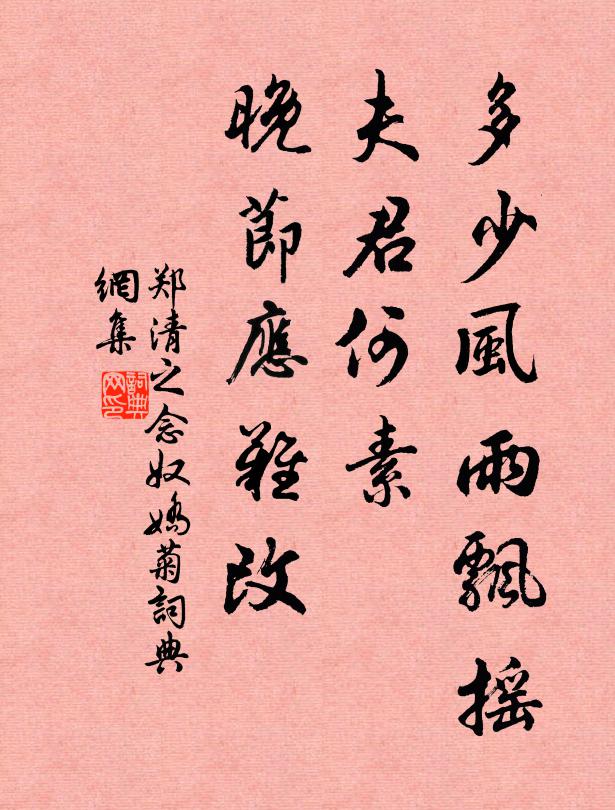 多少風雨飄摇
夫君何素
晚節應難改
郑清之念奴嬌菊詞典
網集
詞典
网印